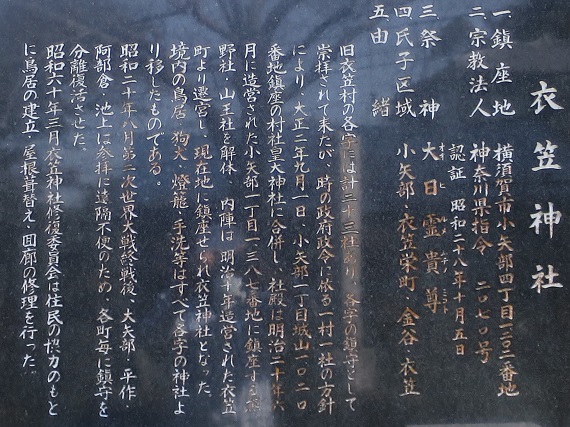 衣笠神社
一、鎮座地 横須賀市小矢部四丁目一三〇二番地
二、宗教法人 神奈川県指令 二〇七〇号
認証 昭和二八年十月五日
三、祭神 大日霊貴尊
オオ ヒル メ ムチ ミコト
四、氏子区域 小矢部・衣笠栄町・金谷・衣笠
五、由緒
旧衣笠村の各字には計二十三社あり、各字の鎮守として
崇拝されて来たが、時の政府政令に依る一村一社の方針
により、大正二年九月一日、小矢部一丁目城山一〇二〇
番地鎮座の村社皇大神社に合併し、社殿は明治二十年六
月に造営された小矢部一丁目一三八七番地に鎮座す
野社・山王社を解体、内陣は明治十年造営された衣笠
町より遷宮し、現在地に鎮座せられ衣笠神社となった。
境内の鳥居・狗犬・燈籠・手洗等はすべて各字の神社よ
り移したものである。
昭和二十年八月第二次世界大戦終戦後、大矢部・平作・
阿部倉・池上は参拝に遠隔不便のため、各町毎に鎮守を
分離復活させた。
昭和六十年三月衣笠神社修復委員会は住民の協力のもと
に鳥居の建立・屋根葺替え・回廊の修理を行った。